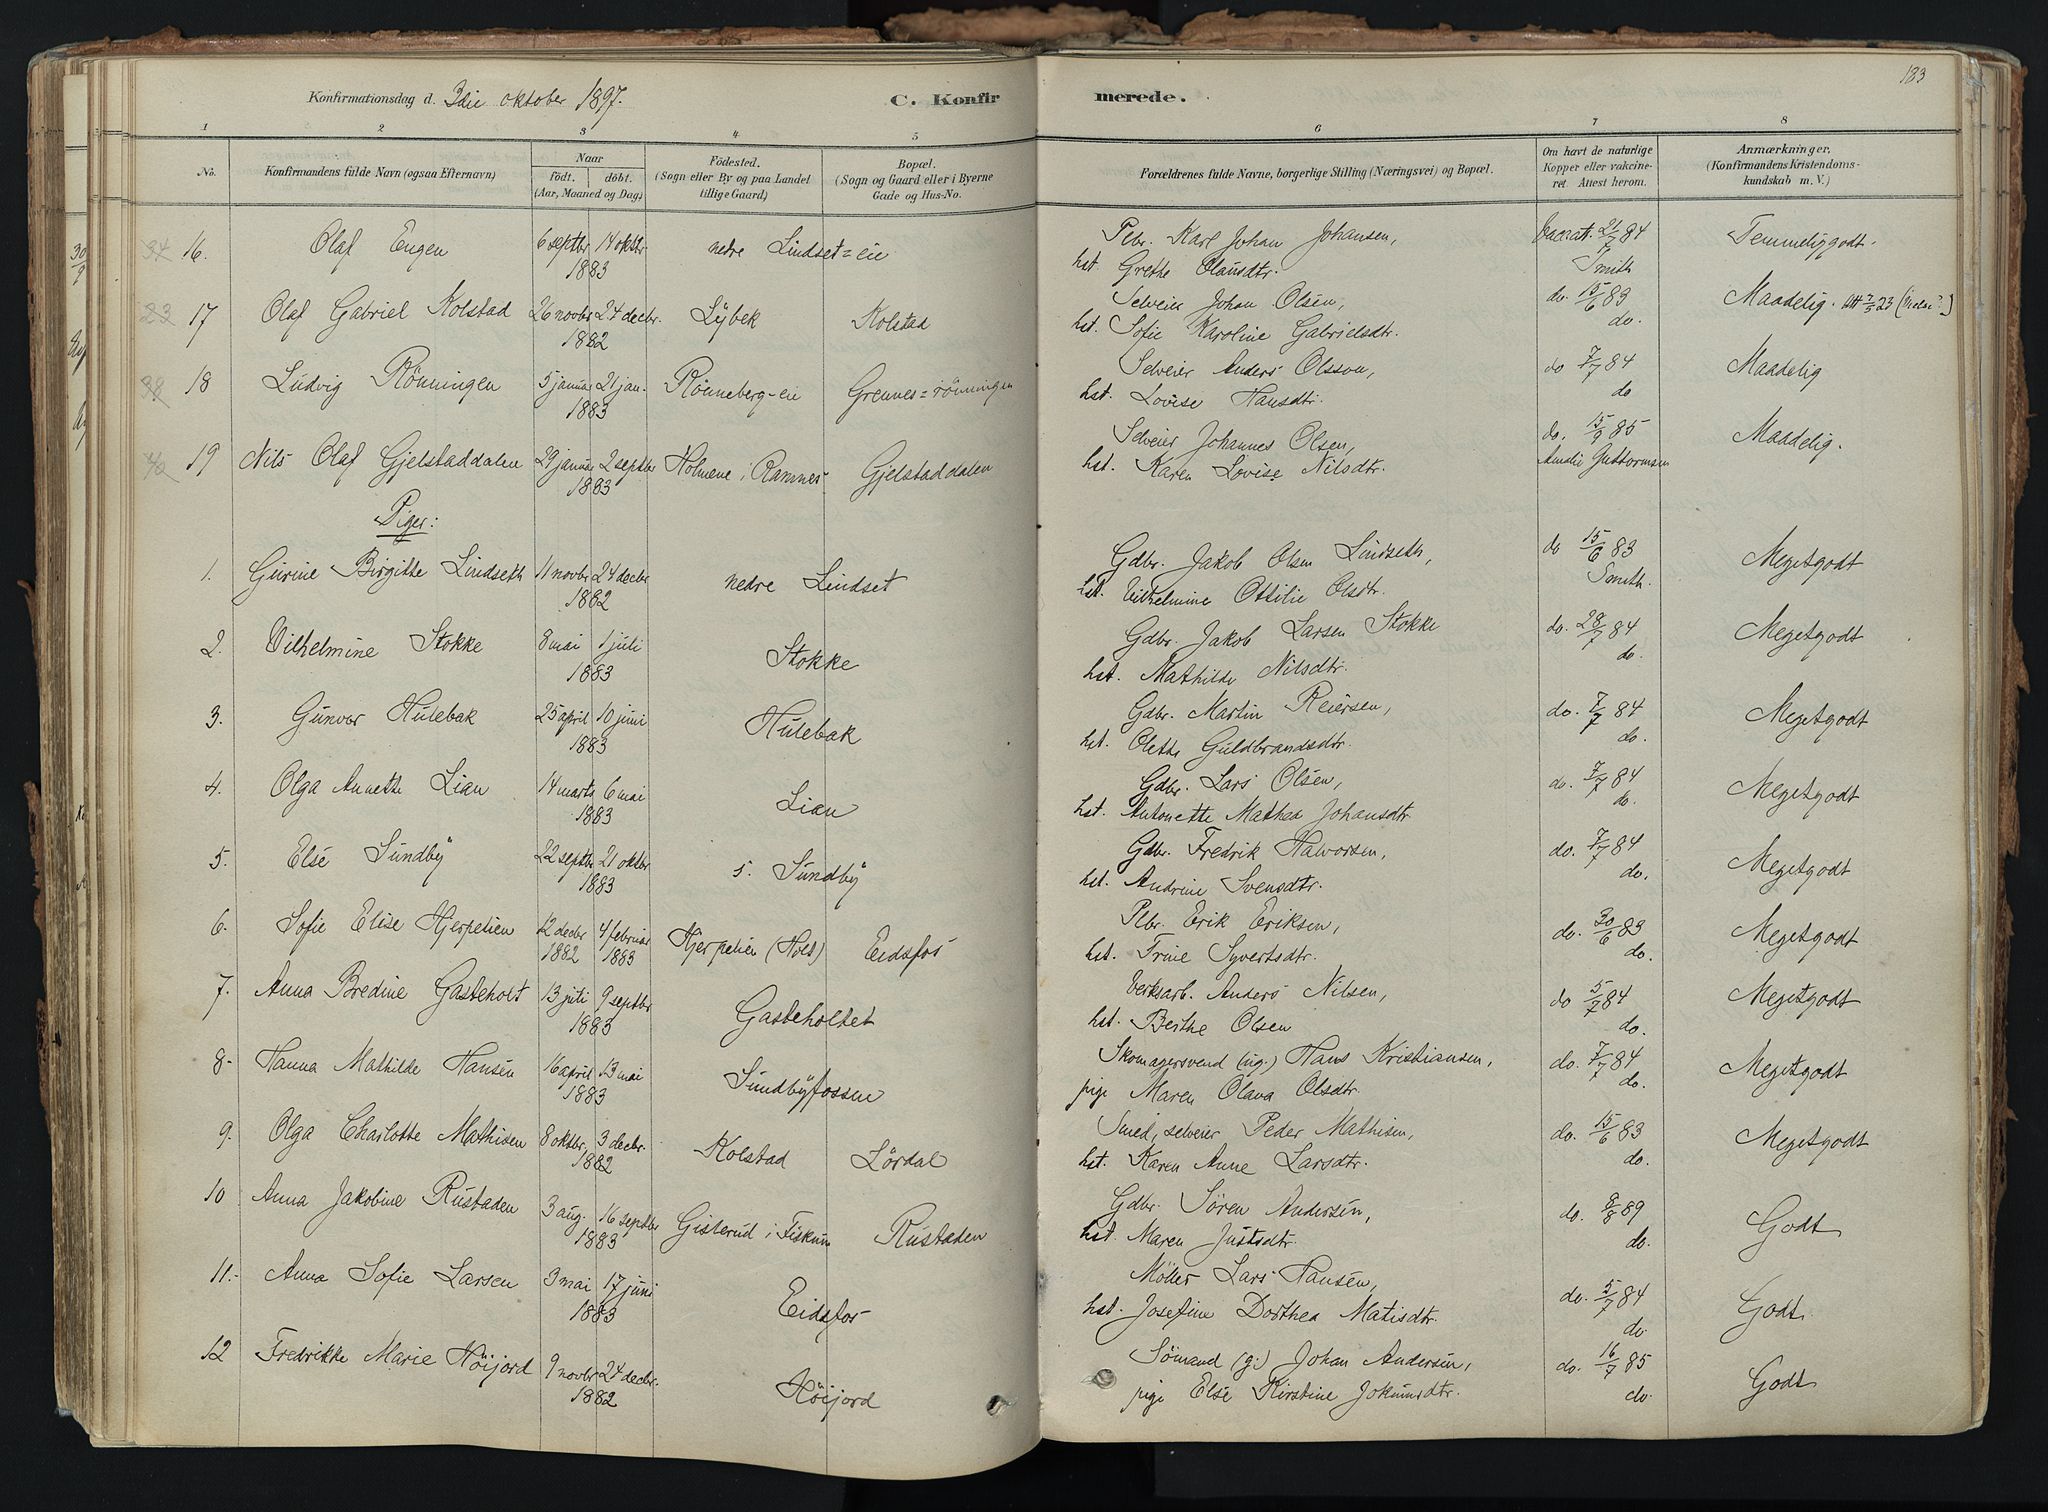 183
Konfirmationsdag d. 3die oktober 1897.
C. Konfir merede.
1 2 3 4 5 6 7 8
No. Konfirmandens fulde Navn (ogsaa Efternavn) Naar födt. döbt. (Aar, Maaned og Dag) Födested. (Sogn eller By og paa Landet tillige Gaard) Bopæl. (Sogn og Gaard eller i Byerne Gade og Hus-No. Forældrenes fulde Navne, borgerlige Stilling (Næringsvei) og Bopæl. Om havt de naturlige Kopper eller vakcineret. Attest herom. Anmærkninger. (Konfirmandens Kristendomskundskab m. V.)
34 16. Olaf Engen 6 septbr 14 oktbr nedre Lindset=eie Plbr. Karl Johan Johansen, vaccat. 21/7 84 Temmelig godt.
1883 hst. Grethe Olausdtr. Smith
23 17 Olaf Gabriel Kolstad 26 novbr 24 decbr. Lybek Kolstad Selveier Johan Olsen, do. 15/6 83 Maadelig.
1882 hst. Sofie Karoline Gabrielsdtr. do.
38 18 Ludvig Rönningen 5 januar 21 jan. Rönneberg-eie Grennes=rönningen Selveier Anders Olsson, do 7/7 84 Maadelig
1883 hst. Lovise Hansdtr. do
40 19 Nils Olaf Gjelstaddalen 29 januar 2 septbr Holmene i Ramnes Gjelstaddalen Selveier Johannes Olsen, do. 15/9 85 Maadelig.
1883 hst. Karen Lovise Nilsdtr. Amalie Guttormsen
Piger:
1. Gurine Birgitte Lindseth 11 novbr 24 decbr nedre Lindset Gdbr. Jakob Olsen Lindseth, do 15/6 83 Megetgodt
1882 hst. Vilhelmine Ottilie Olsdtr. Smith.
2. Vilhelmine Stokke 8 mai 1 juli Stokke Gdbr. Jakob Larsen Stokke do. 28/7 84 Megetgodt
1883 hst. Mathilde Nilsdtr. do.
3. Gunvor Hulebak 25 april 10 juni Hulebak Gdbr. Martin Reiersen, do. 7/7 84 Megetgodt
1883 hst. Olette Guldbrandsdtr. do.
4. Olga Annette Lian 14 marts 6 mai Lian Gdbr. Lars Olsen, do. 7/7 84 Megetgodt
1883 hst. Antonette Mathea Johansdtr do.
5. Else Sundby 22 septbr 21 oktbr s. Sundby Gdbr. Fredrik Halvorsen, do. 7/7 84 Megetgodt
1883 hst. Andrine Svensdtr. do.
6. Sofie Elise Hjerpetien 12 decbr 4 februar Hjerpetien (Holt) Eidsfos Plbr. Erik Eriksen, do. 30/6 83 Megetgodt
1882 1883 hst. Trine Syvertsdtr. do.
7. Anna Bredine Gasteholt 13 juli 9 septbr Gasteholtet Verksarb. Anders Nilsen, do 5/7 84 Megetgodt
1883 hst. Berthe Olsen do.
8- Hanna Mathilde Hansen 16 april 13 mai Sundbyfossen Skomagersvend (ug.) Hans Kristiansen, do. 7/7 84 Megetgodt
1883 pige Maren Olava Olsdtr. do.
9. Olga Charlotte Mathisen 8 oktbr, 3 decbr. Kolstad Lördal Smed, selveier Peder Mathisen, do. 15/6 83 Megetgodt
1882 hst. Karen Anne Larsdtr. do.
10 Anna Jakobine Rustaden 3 aug. 16 septbr Gisterud i Fiskum Rustaden Gdbr. Sören Andersen, do. 8/8 89 Godt
1883 hst. Maren Justsdtr. do.
11.- Anna Sofie Larsen 3 mai 17 juni Eidsfos Möller Lars Hansen, do. 5/7 84 Godt.
1883 hst. Josefine Dorthea Matisdtr. do
12 Fredrikke Marie Höijord 9 novbr 24 decbr. Höijord Sömand (g.) Johan Andersen, do. 16/7 85 Godt
1882 pige Else Kirstine Jokumsdtr. do.